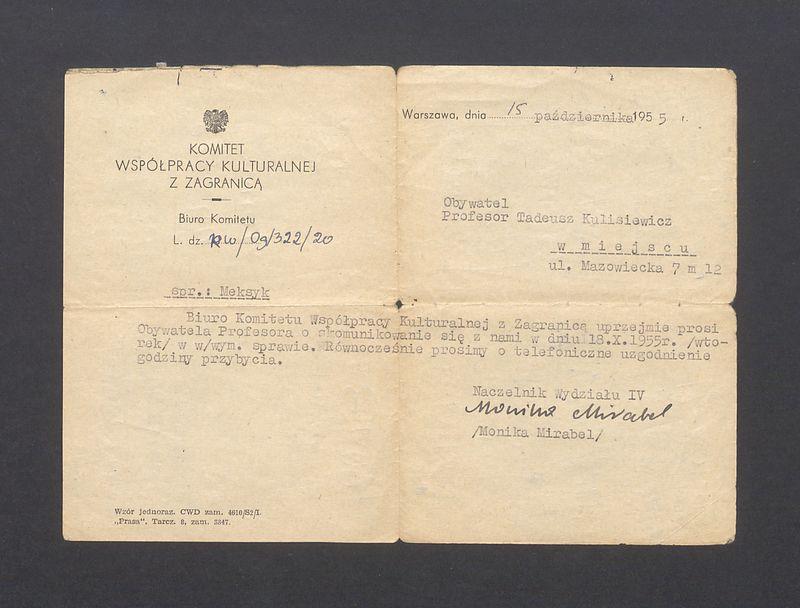 KOMITET
WSPÓŁPRACY KULTURALNEJ
Z ZAGRANICĄ
Biuro Komitetu
L. dz. KW/Og/322/20
Warszawa, dnia 15 października 1955 r.
Obywatel
Profesor Tadeusz Kulisiewicz
w miejscu
ul. Mazowiecka 7 m 12
spr.: Meksyk
Biuro Komitetu Współpracy Kulturalnej z Zagranicą uprzejmie prosi
Obywatela Profesora o skomunikowanie się z nami w dniu 18.X.1955r. /wto-
rek/ w w/wym. sprawie. Równocześnie prosimy o telefoniczne uzgodnienie
godziny przybycia.
Naczelnik Wydziału IV
Monika Mirabel
/Monika Mirabel/
Wzór jednoraz. CWD zam. 4610/S2/I.
„Prasa". Tarcz. 8, zam. 3347.